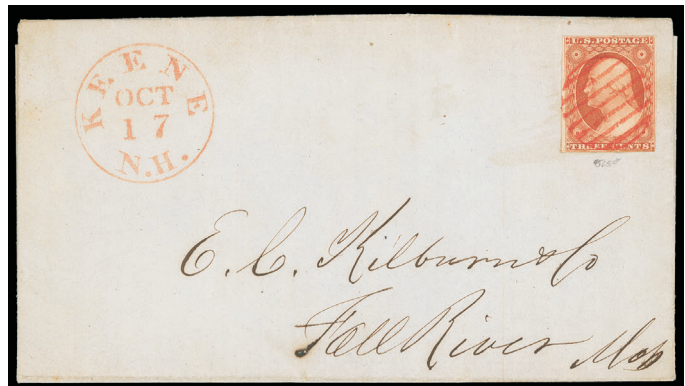 KEENE
OCT
17
N.H.
U.S. POSTAGE
THREE CENTS
E. C. Kilburn & Co
Fall River Mass